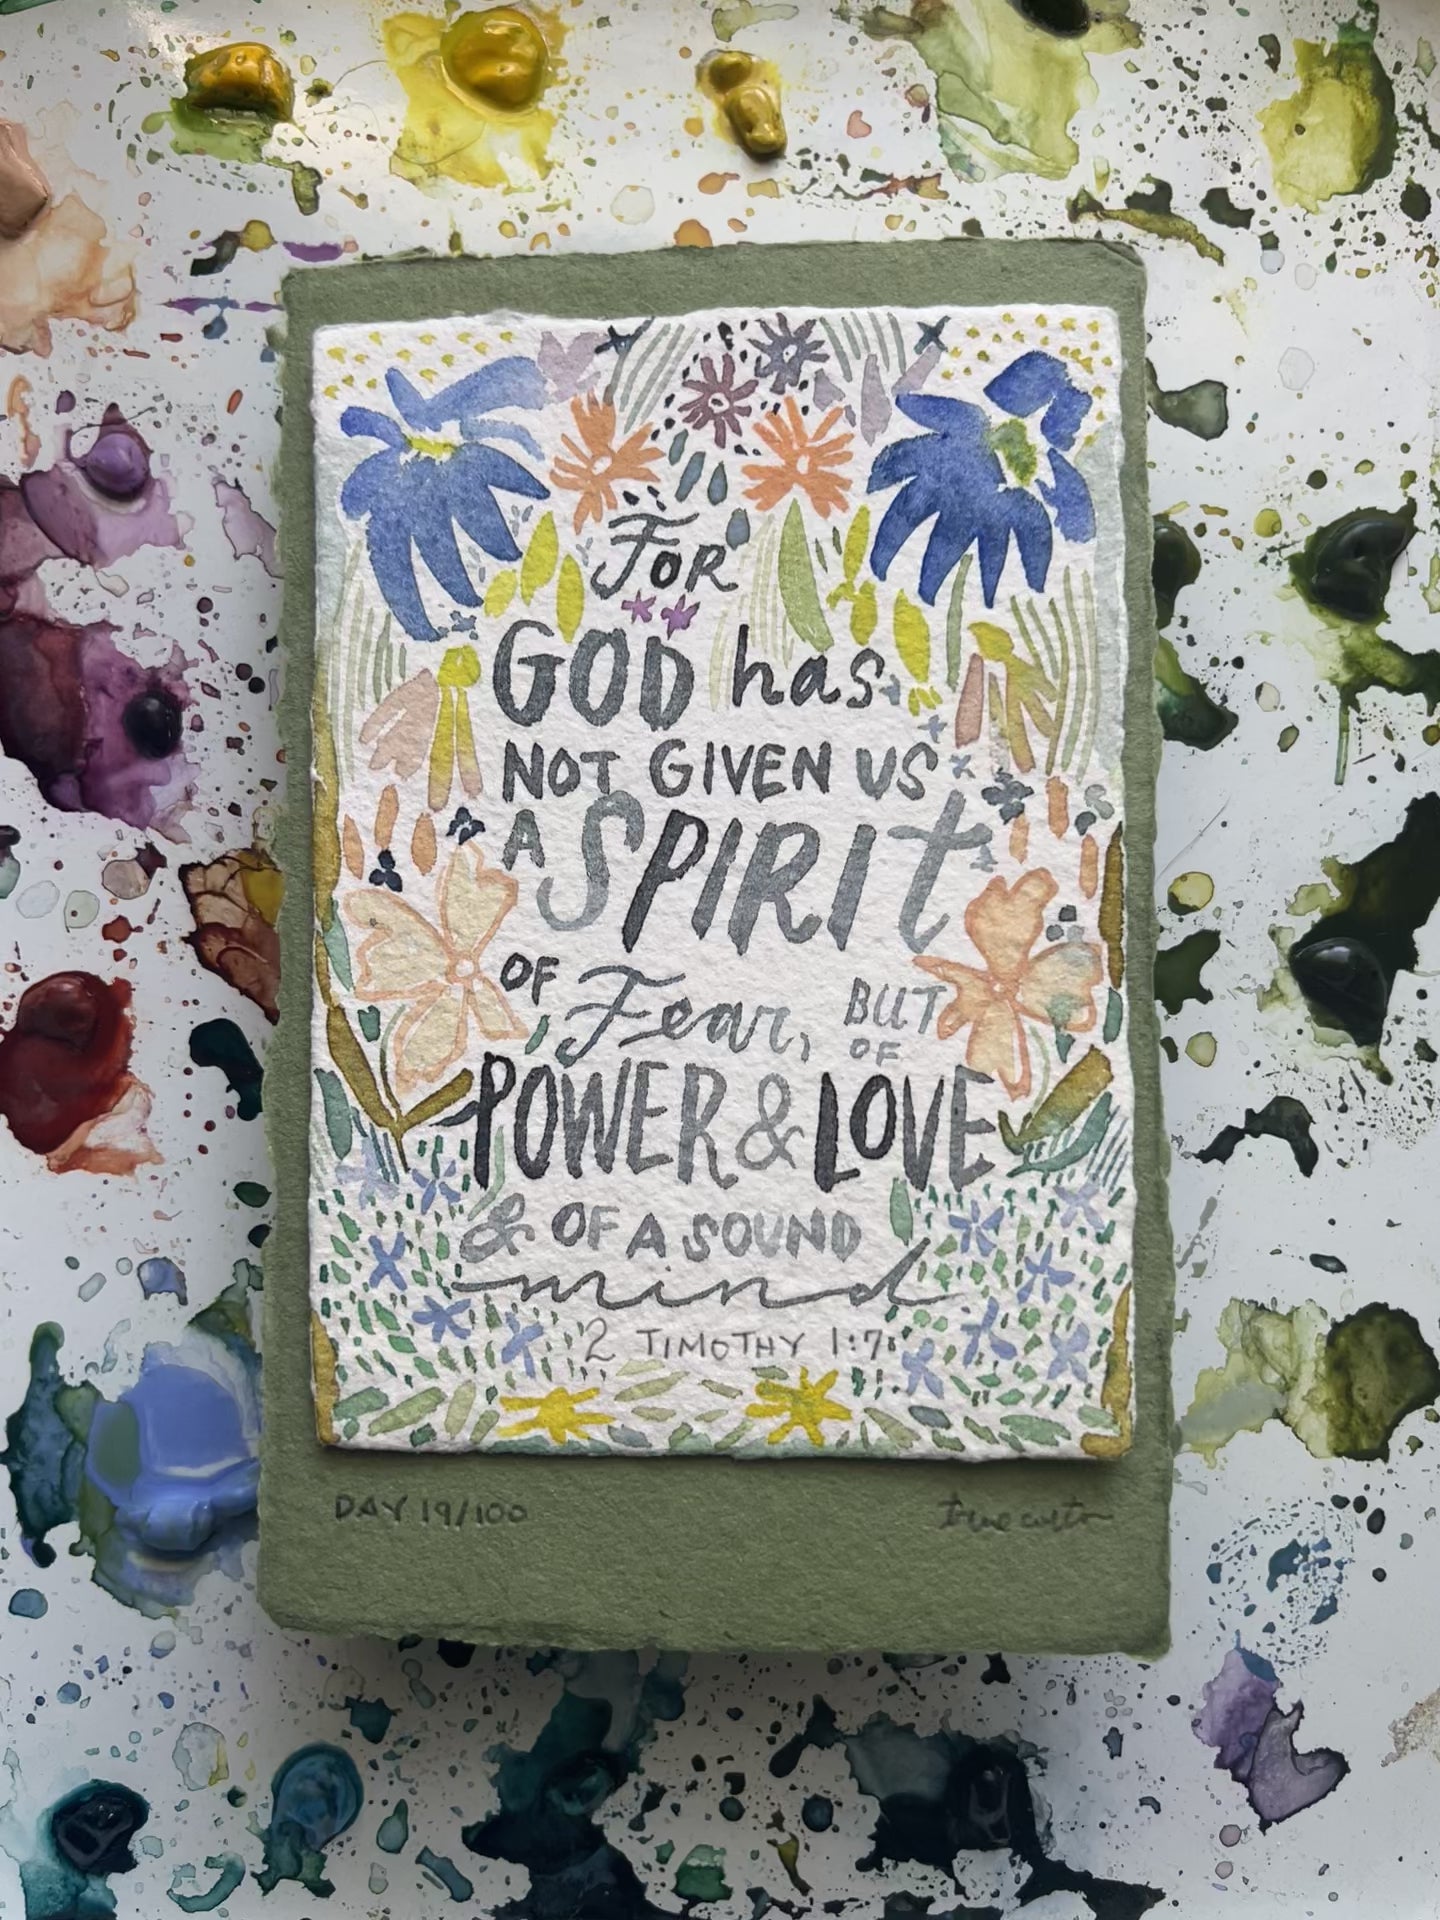 FOR
GOD has
NOT GIVEN US
A SPIRIT
OF Fear, BUT
OF
POWER & LOVE
& OF A SOUND
mind
2 TIMOTHY 1:7
DAY 19/100